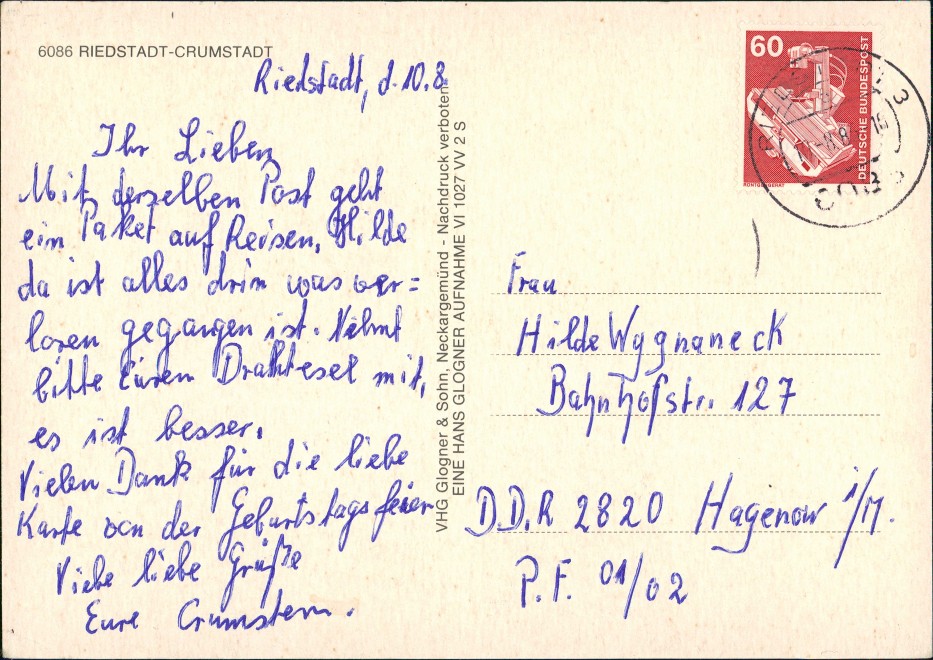 6086 RIEDSTADT-CRUMSTADT
Riedstadt, d. 10.8.
Ihr Lieben
Mit derselben Post geht
ein Paket auf Reisen, Hilde
da ist alles drin was ver=
loren gegangen ist. Nehmt
bitte Euren Drahtesel mit,
es ist besser.
Vielen Dank für die liebe
Karte von der Geburtstagsfeier
Viebe liebe Grüße
Eure Crumstern.
VHG Glogner & Sohn, Neckargemünd - Nachdruck verboten
EINE HANS GLOGNER AUFNAHME VI 1027 VV 2 S
60
DEUTSCHE BUNDESPOST
RÖNTGENGERÄT
Frau
Hilde Wygnaneck
Bahnhofstr. 127
D.D.R 2820 Hagenow i/M.
P.F. 01/02